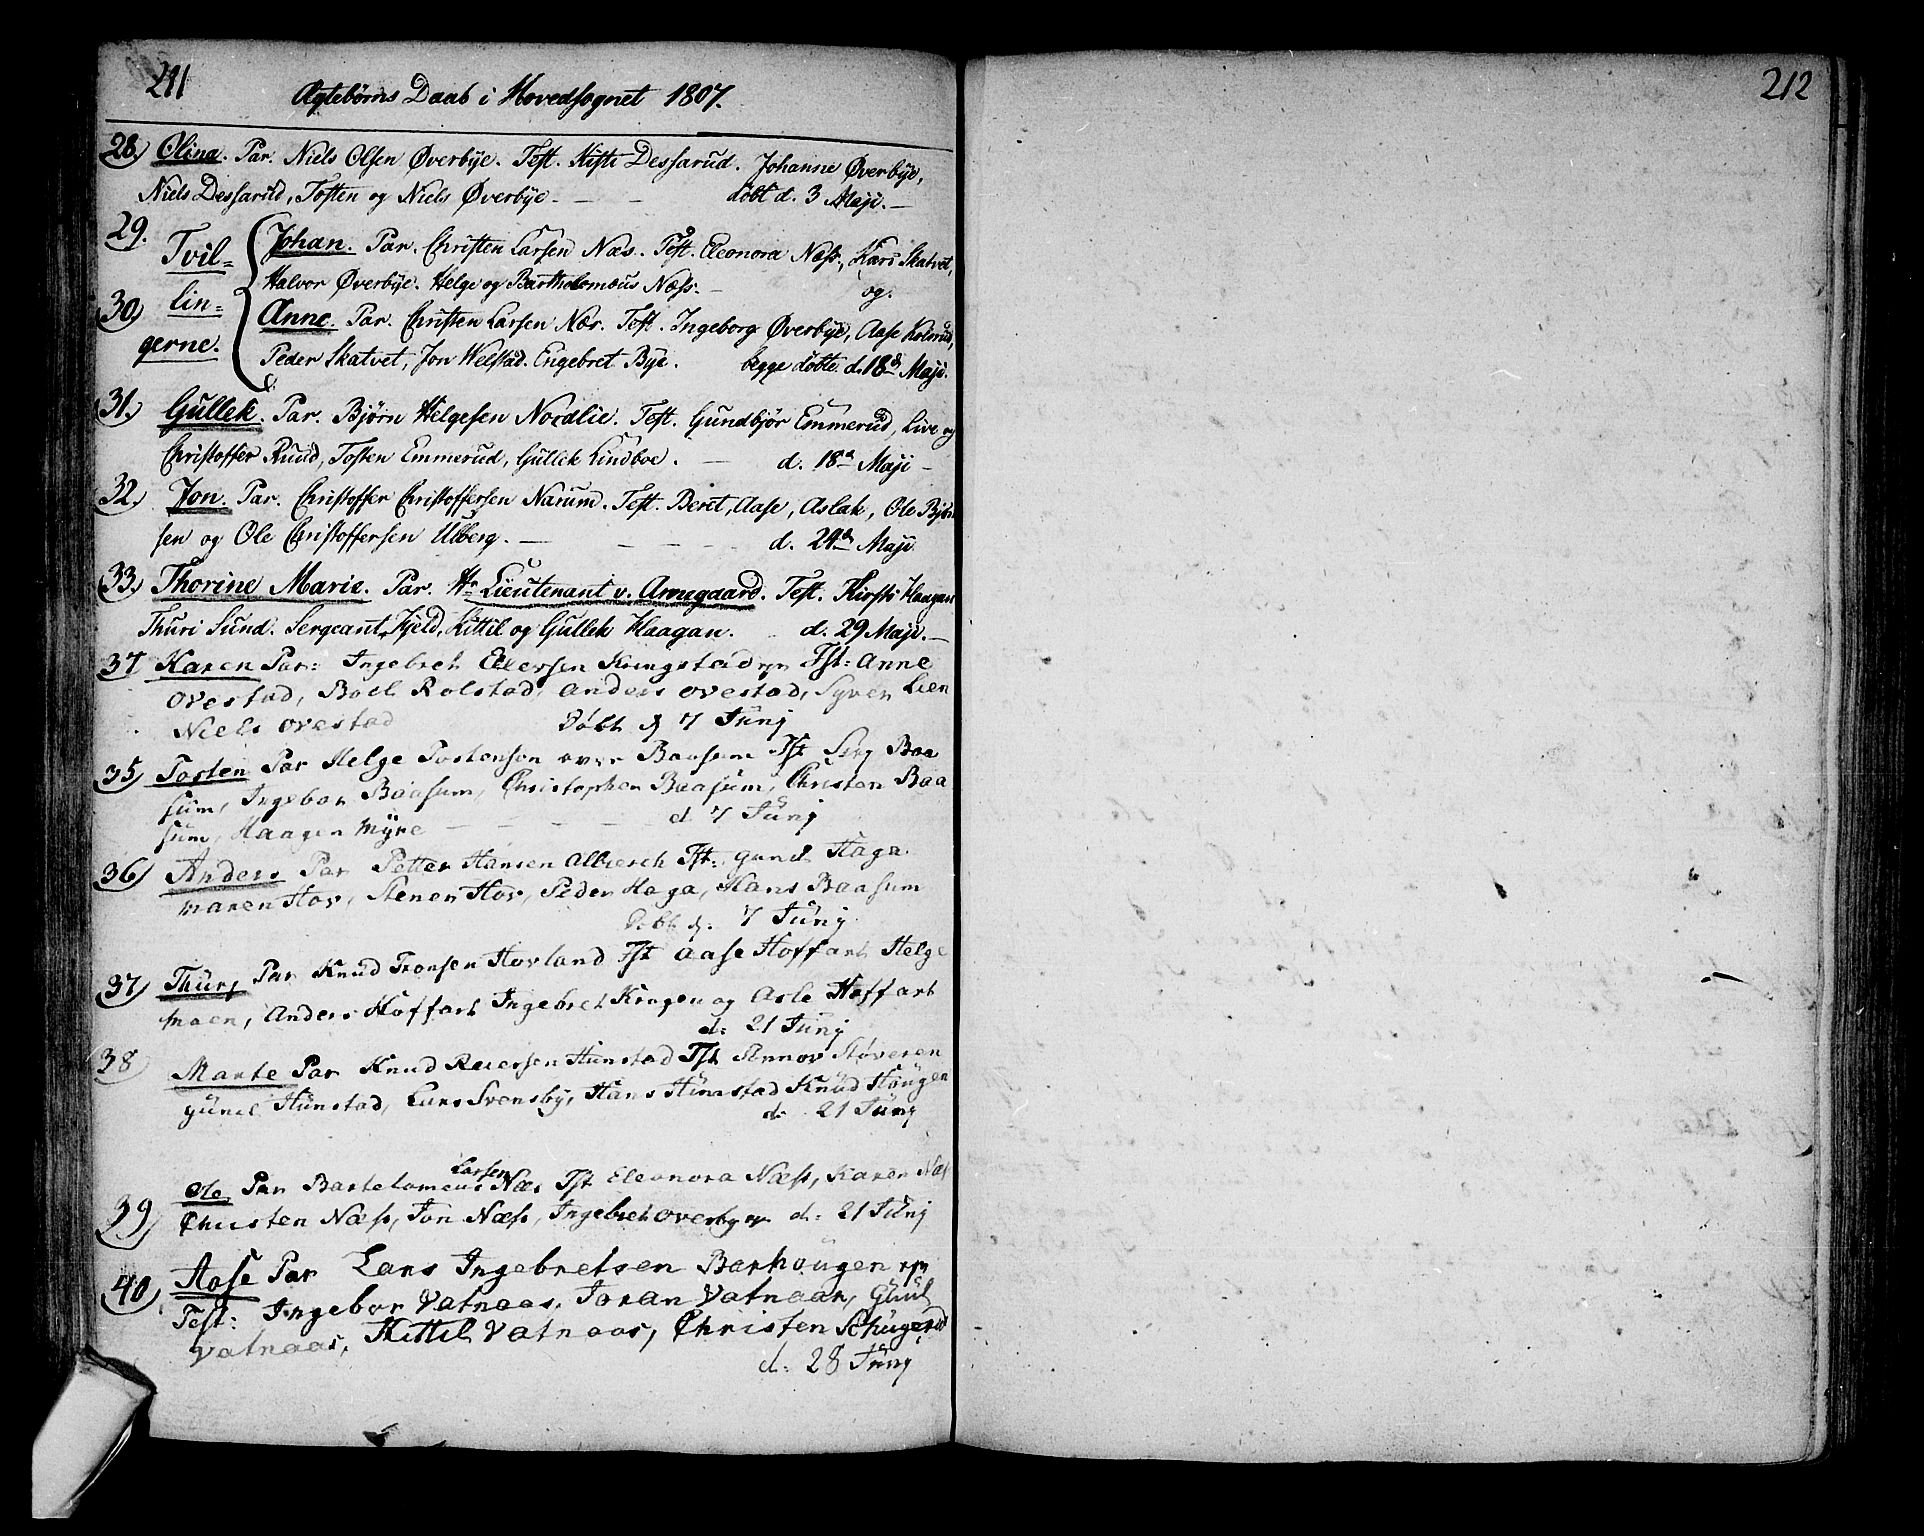 211
Ægtebørns Daab i Hovedsognet 1807.
28.) Olina. Par. Niels Olsen Øverbÿe. Test. Kisti Dessarud. Johanne Øverbÿe,
Niels Dessarud, Tosten og Niels Øverbÿe - döbt d. 3 Maji. -
29. Johan. Par. Christen Larsen Næs. Test. Eleonora Næss., Kari Skatvet,
Tvil=
Halvor Øverbÿe. Helge og Bartholomæus Næss. - og.
30) lin= Anne. Par. Christen Larsen Næs. Test. Ingeborg Øverbÿe, Aase Kolsrud,
gerne. Peder Skatvet, Jon Welstad. Engebret Bÿe. begge döbte d. 18de Maji.
31.) Gullek. Par. Bjørn Helgesen Nordlie. Test. Gundbjör Emmerud, Live og
Christoffer Ruud, Tosten Emmerud, Gullek Lindboe. - d. 18de Maji -
32.) Jon. Par. Christoffer Christoffersen Narum. Test. Beret, Aase, Aslak, Ole Bjørn
sen og Ole Christoffersen Ulberg. - d. 24de Maji
33.) Thorine Marie. Par. Hr Lieutenant v. Arnegaard. Test. Kirsti Haagan
Thuri Sund. Sergeant Kjeld, Kittil og Gullek Haagan. d. 29 Maji. -
37 Karen Par: Ingebret Ellersen Kringstad Tst: Anne
Ovestad, Boel Rolstad, Anders Ovestad, Syver Lien
Niels Ovestad Döbt d 7 Junj
35) Tosten Par Helge Tostensen over Baasum Tst Sirg Baa
sum, Ingebor Baasum, Christopher Baasum, Christen Baa
sum, Haagen Myre - - - - d 7 Junj
36) Anders Par Petter Hansen Tst: Gunil Haga
Maren Hov, Stener Hov, Peder Haga, Hans Baasum
Döbt d. 7 Junj.
37) Thurj Par Knud Tronsen Hovland Tst Aase Hoffart Helge
Moen, Anders Hoffart Ingebret Krogen og Asle Hoffart
d: 21 Junj
38 Marte Par Knud Reiersen Hunstad Tst Annov Støveren
Gunil Hunstad, Lars Svensby, Hans Hunstad Knud Hougen
d: 21 Junj
39) Ole Par Bartelomeus Larsen Næs Tst Eleonora Næss, Karen Næs
Christen Næss, Jon Næss, Ingebret Overby d: 21 Junj
40) Aase Par Lars Ingebretsen Barhougen
Test: Ingebor Vatnaas, Joran Vatnaas, Guul
Vatnaas, Kittil Vatnaas, Christen Schugerud
d: 28 Junj
212